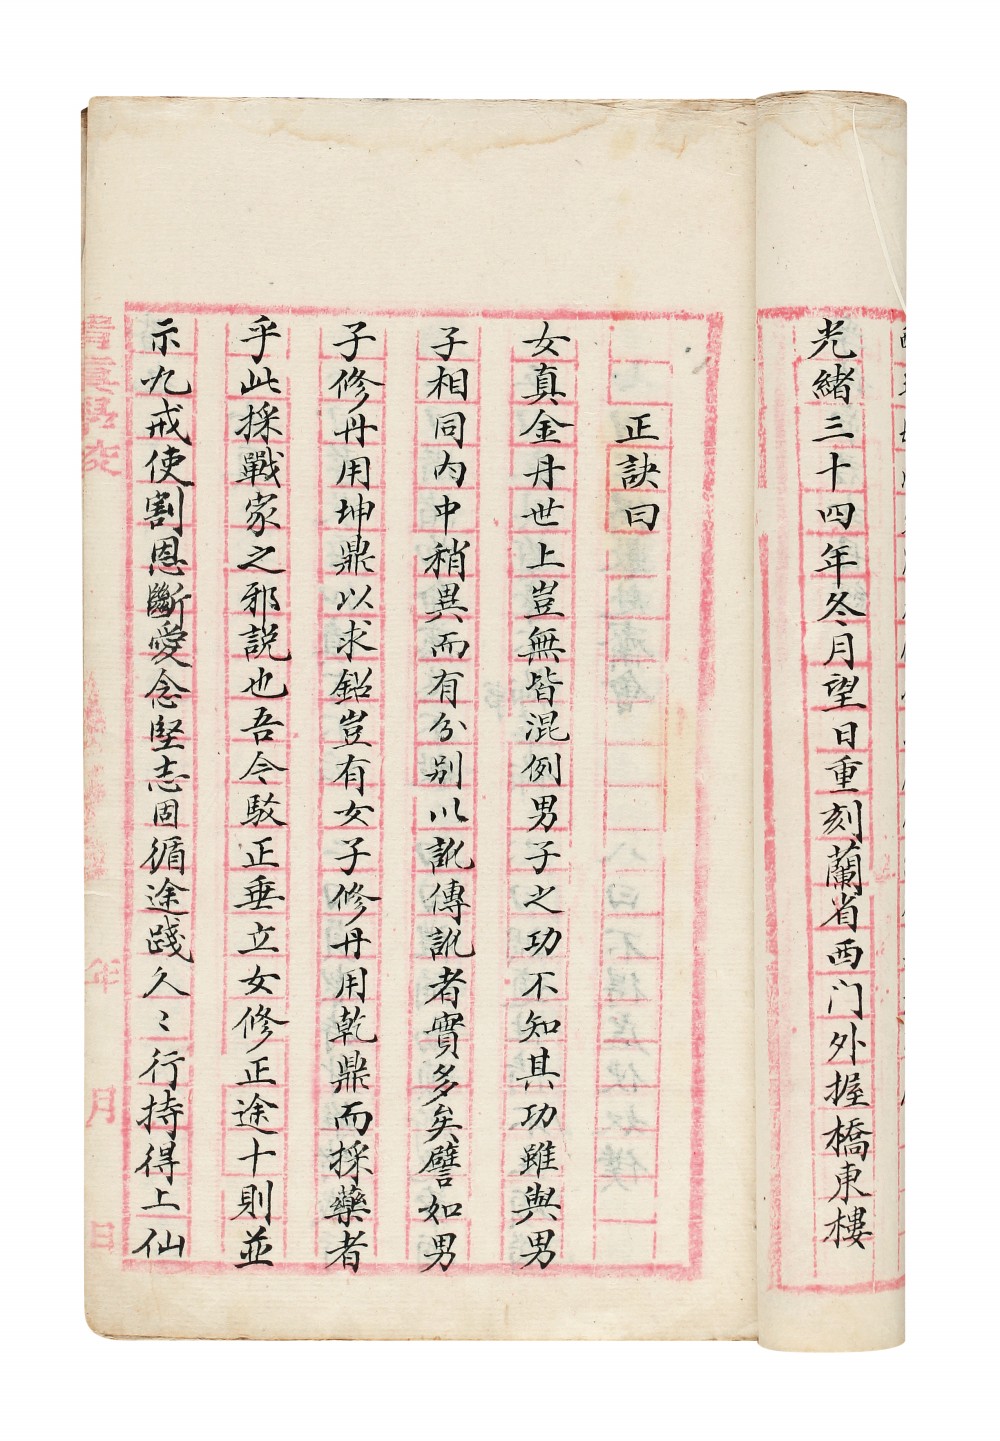 光緒三十四年冬月望日重刻蘭省西门外握橋東樓
正訣曰
女真金丹世上豈無皆混例男子之功不知其功雖與男
子相同内中稍異而有分别以訛傳訛者實多矣譬如男
子修丹用坤鼎以求鉛豈有女子修丹用乾鼎而採藥者
乎此採戰家之邪説也吾今駁正垂立女修正途十則並
示九戒使割恩斷愛念堅志固循途踐久〻行持得上仙
年 月 日